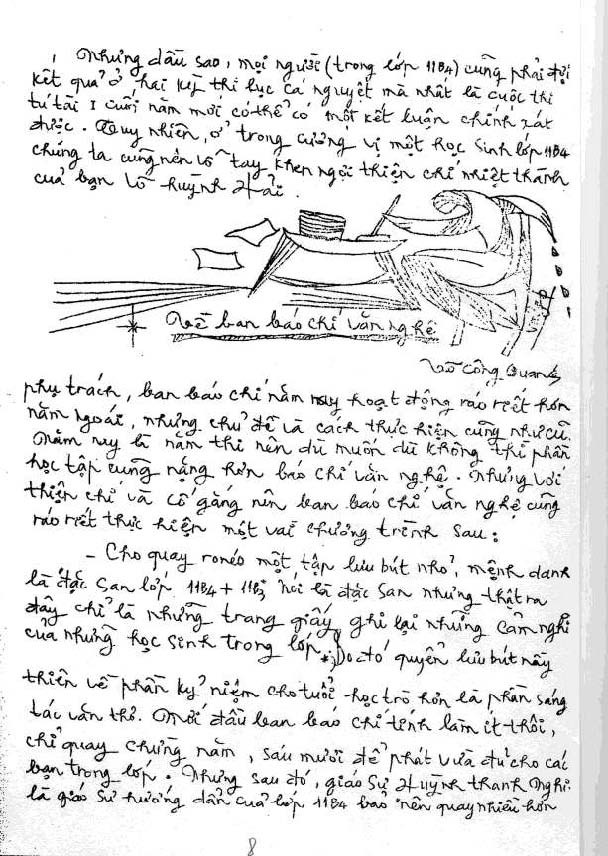 Nhưng dầu sao, mọi người (trong lớp 11B4) cũng phải đợi
kết quả ở hai kỳ thi lục cá nguyệt mà nhất là cuộc thi
tú tài I cuối năm mới có thể có một kết luận chính xát
được. Tuy nhiên, ở trong cương vị một học sinh lớp 11B4
chúng ta cũng nên vỗ tay khen ngợi thiện chí nhiệt thành
của bạn Võ Huỳnh Hải.
Về ban báo chí văn nghệ
Võ Công Quang
phụ trách, ban báo chí năm nay hoạt động ráo riết hơn
năm ngoái, nhưng chủ đề và cách thực hiện cũng như cũ.
Năm nay là năm thi nên dù muốn dù không thì phần
học tập cũng nặng hơn báo chí văn nghệ. Nhưng với
thiện chí và cố gắng nên ban báo chí văn nghệ cũng
ráo riết thực hiện một vài chương trình sau:
- Cho quay ronéo một tập lưu bút nhỏ, mệnh danh
là đặc san lớp 11B4 + 11B5 nói là đặc san nhưng thật ra
đây chỉ là những trang giấy ghi lại những cảm nghĩ
của những học sinh trong lớp. Do đó quyển lưu bút nầy
thiên về phần kỷ niệm cho tuổi học trò hơn là phần sáng
tác văn thơ. Mới đầu ban báo chí tính làm ít thôi,
chỉ quay chừng năm, sáu mươi để phát vừa đủ cho các
bạn trong lớp. Nhưng sau đó, giáo sư Huỳnh Thanh Nghi
là giáo sư hướng dẫn của lớp 11B4 bảo nên quay nhiều hơn
8